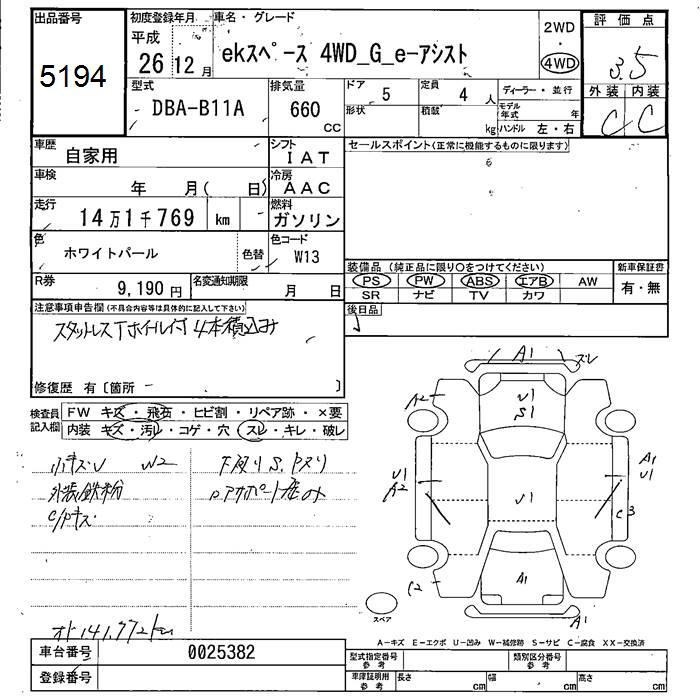 出品番号
5194
初度登録年月
平成
26 12月
車名・グレード
ekスペース 4WD_G_e-アシスト
2WD
・
4WD
評価点
3.5
外装 内装
C C
型式
DBA-B11A
排気量
660
cc
ドア
5
形状
定員
4 人
積載
kg
ディーラー・並行
モデル年式 年
ハンドル 左・右
車歴
自家用
シフト
IAT
車検
年 月( 日)
冷房
AAC
走行
14万1千769 km
燃料
ガソリン
色
ホワイトパール
色替
色コード
W13
R券
9,190円
名変通知期限
月 日
セールスポイント(正常に機能するものに限ります)
装備品 (純正品に限り○をつけてください)
PS PW ABS エアB AW
SR ナビ TV カワ
新車保証書
有・無
後日品
注意事項申告欄(不具合内容等は具体的に記入して下さい)
スタットレスTホイル付 4本積込み
修復歴 有〔箇所 〕
検査員
記入欄
FW キズ・飛石・ヒビ割・リペア跡・×要
内装 キズ・汚レ・コゲ・穴・スレ・キレ・破レ
小キズU W2
外装鉄粉
下廻りS.キズリ
オド141,772km
A1
スレ
A2
U1
S1
U1
A2
U1
A1
U1
C3
C2
A1
A1
スペア
A-キズ E-エクボ U-凹み W-補修跡 S-サビ C-腐食 XX-交換済
車台番号
0025382
登録番号
型式指定番号
参考
類別区分番号
参考
車庫証明用
参考
長さ cm
幅 cm
高さ cm